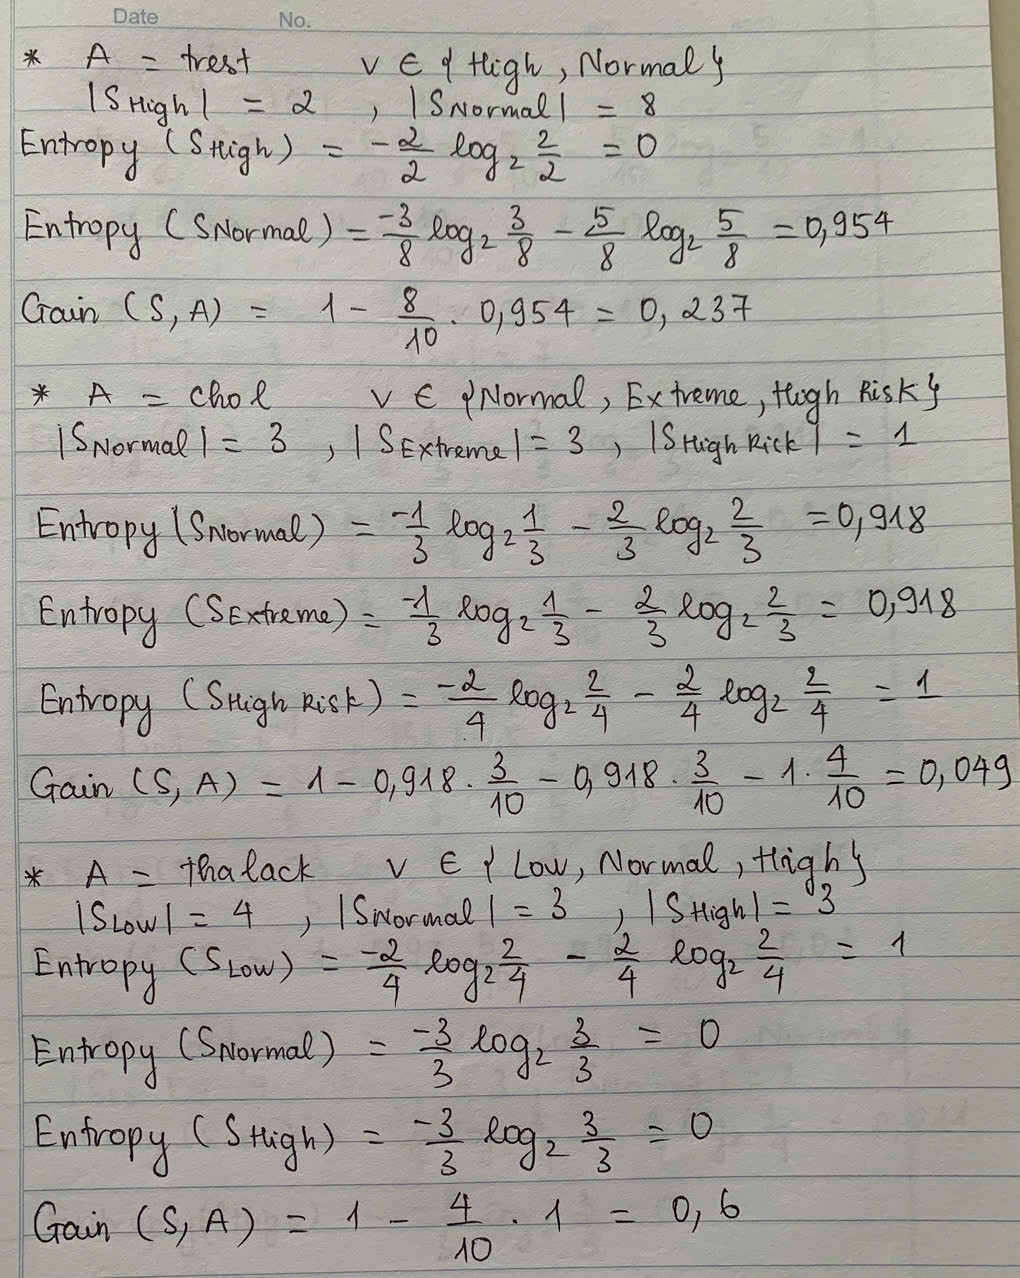 Date No.
* A = trest v ∈ {High, Normal}
|SHigh| = 2 , |SNormal| = 8
Entropy (SHigh) = -2/2 log₂ 2/2 = 0
Entropy (SNormal) = -3/8 log₂ 3/8 - 5/8 log₂ 5/8 = 0,954
Gain (S, A) = 1 - 8/10 . 0,954 = 0,237
* A = chol v ∈ {Normal, Extreme, High Risk}
|SNormal| = 3 , |SExtreme| = 3 , |SHigh Rick| = 1
Entropy (SNormal) = -1/3 log₂ 1/3 - 2/3 log₂ 2/3 = 0,918
Entropy (SExtreme) = -1/3 log₂ 1/3 - 2/3 log₂ 2/3 = 0,918
Entropy (SHigh Risk) = -2/4 log₂ 2/4 - 2/4 log₂ 2/4 = 1
Gain (S, A) = 1 - 0,918 . 3/10 - 0,918 . 3/10 - 1 . 4/10 = 0,049
* A = thalack v ∈ {Low, Normal, High}
|SLow| = 4 , |SNormal| = 3 , |SHigh| = 3
Entropy (SLow) = -2/4 log₂ 2/4 - 2/4 log₂ 2/4 = 1
Entropy (SNormal) = -3/3 log₂ 3/3 = 0
Entropy (SHigh) = -3/3 log₂ 3/3 = 0
Gain (S, A) = 1 - 4/10 . 1 = 0,6